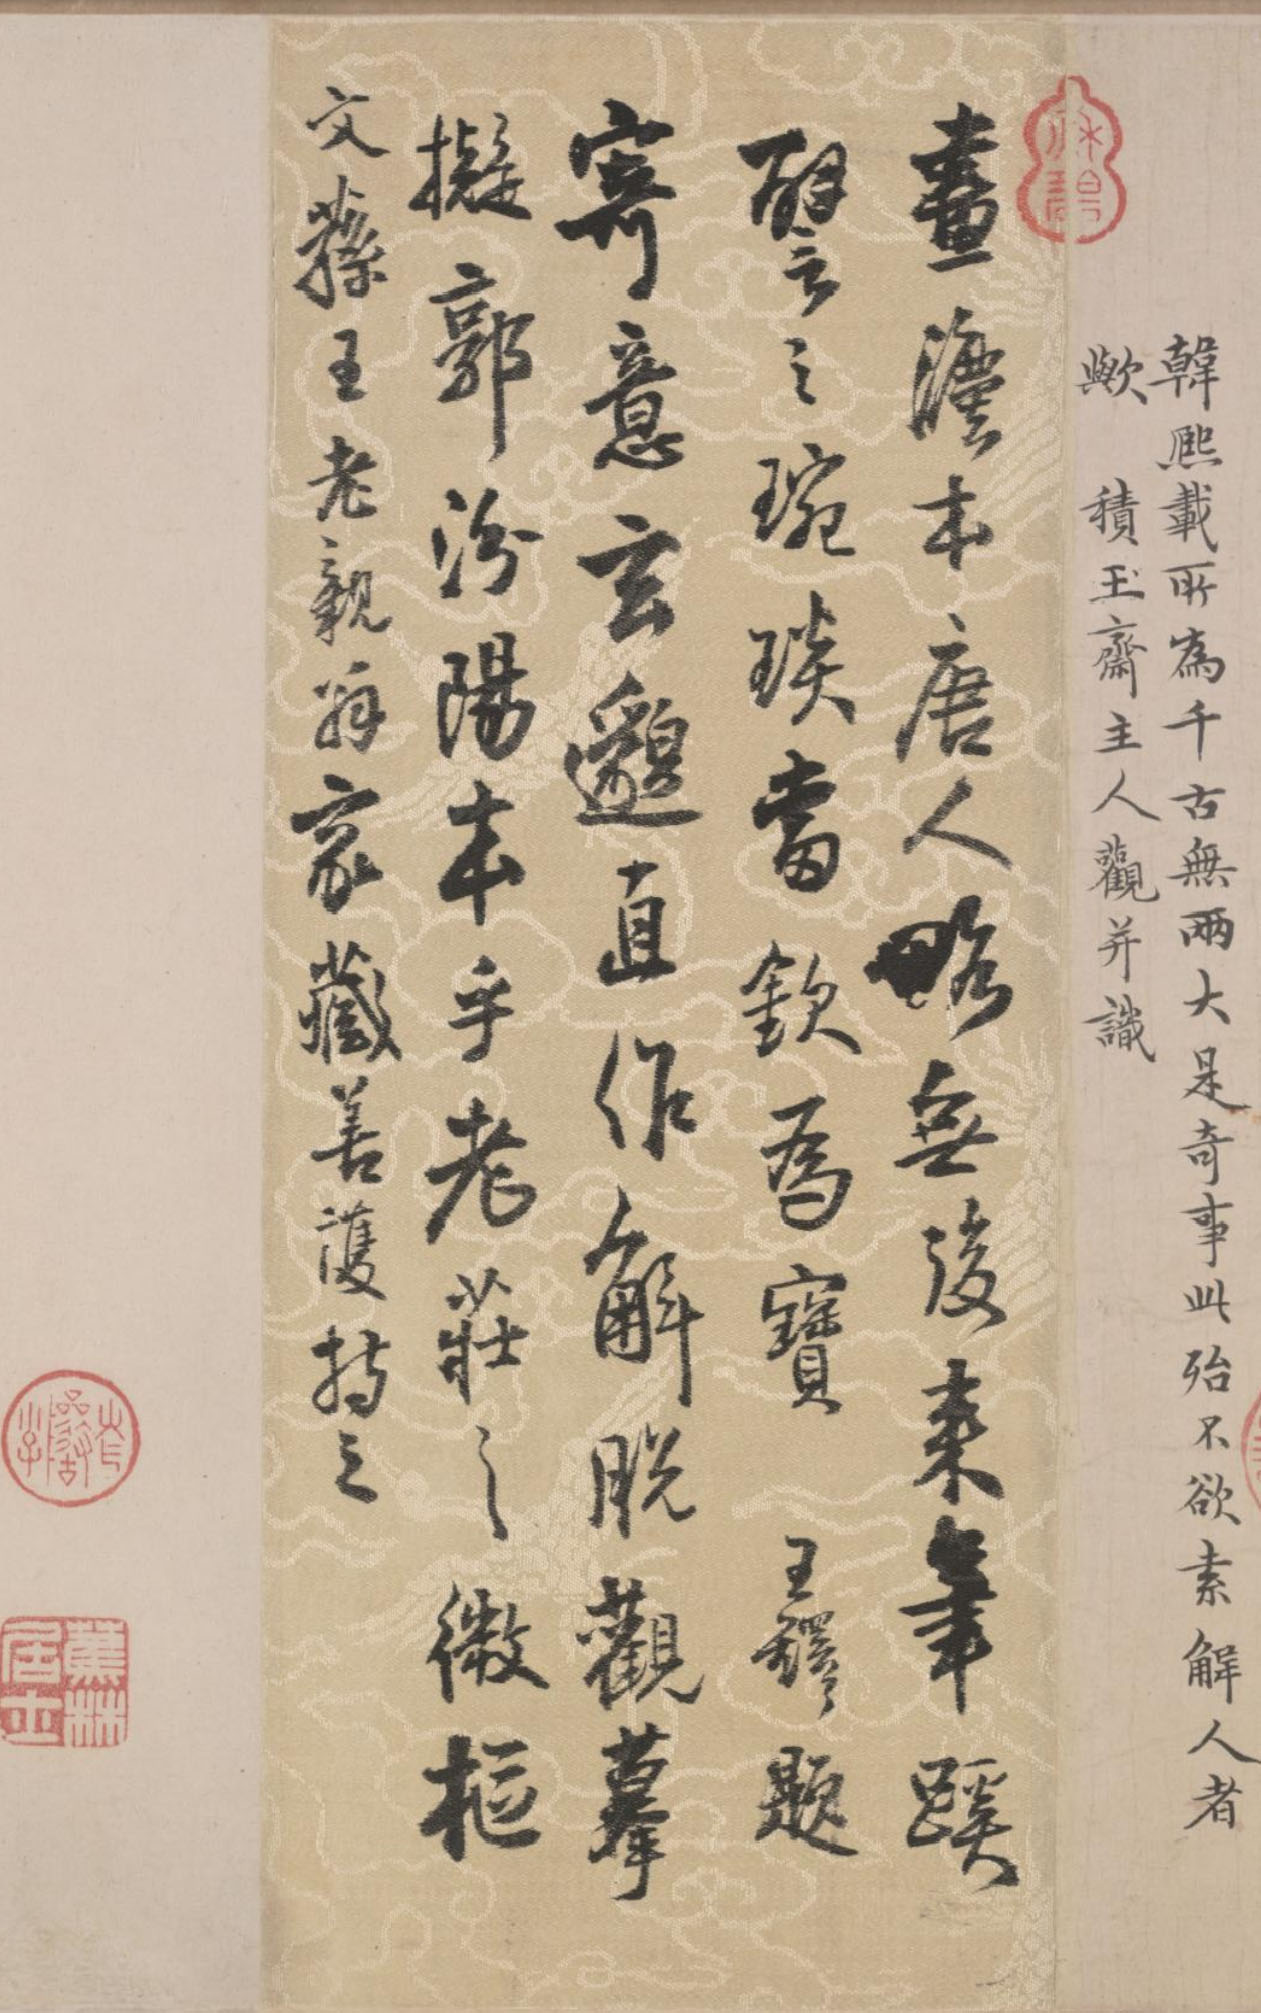 韓熙載所為千古無兩大是奇事此殆不欲素解人者
歟 積玉齋主人觀并識
畫灋本唐人略無後来筆蹊
譬之琬琰當欽為寶 王鐸題
寄意玄邈直作解脱觀摹
擬郭汾陽本乎老莊之微樞
文蓀王老親翁家藏善護持之
蕉林
居士